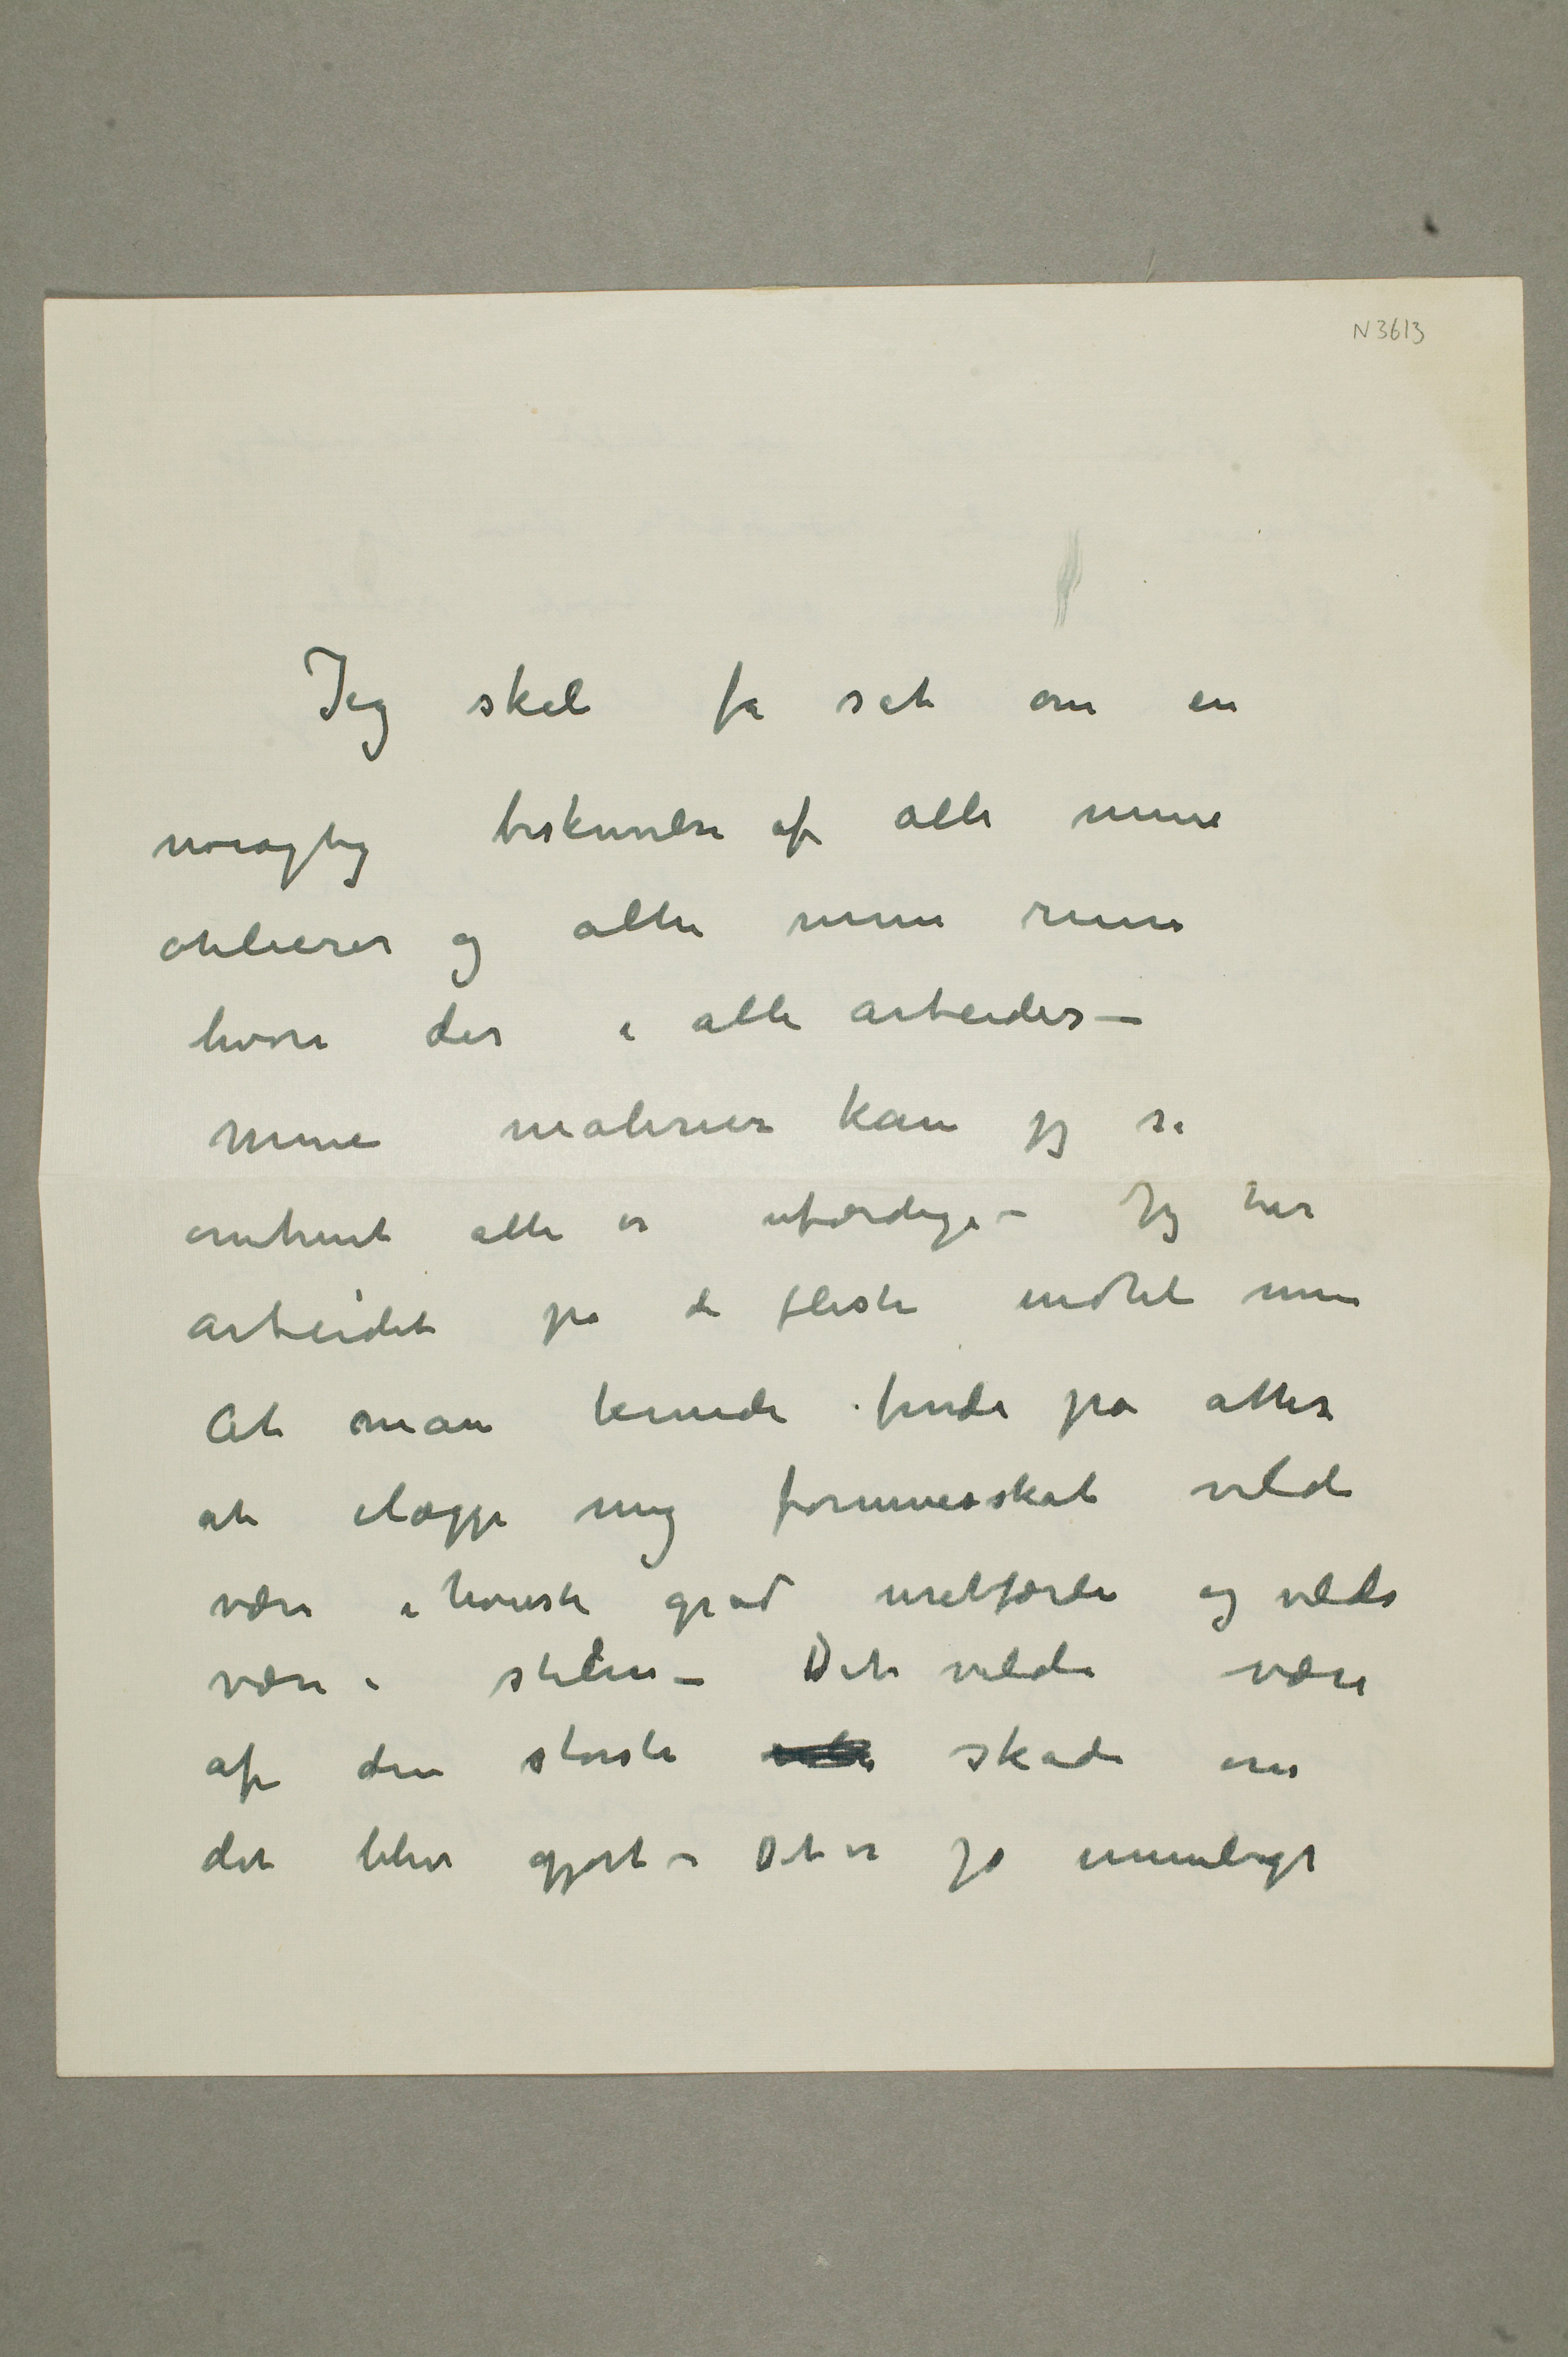 N 3613
Jeg skal få sat om en
nøiagtig beskrivelse af alle mine
atelierer og alle mine rum
hvori der i alle arbeides –
Mine malerier kan jeg si
omtrent alle er ufærdige – Jeg har
arbeidet på de fleste indtil nu
At man kunde finde på atter
at ilægge mig formuesskat vilde
være i høieste grad uretfærdi og vilde
være i stilen – Det vilde være
af den største skade om
det blev gjort – Det er jo umuligt